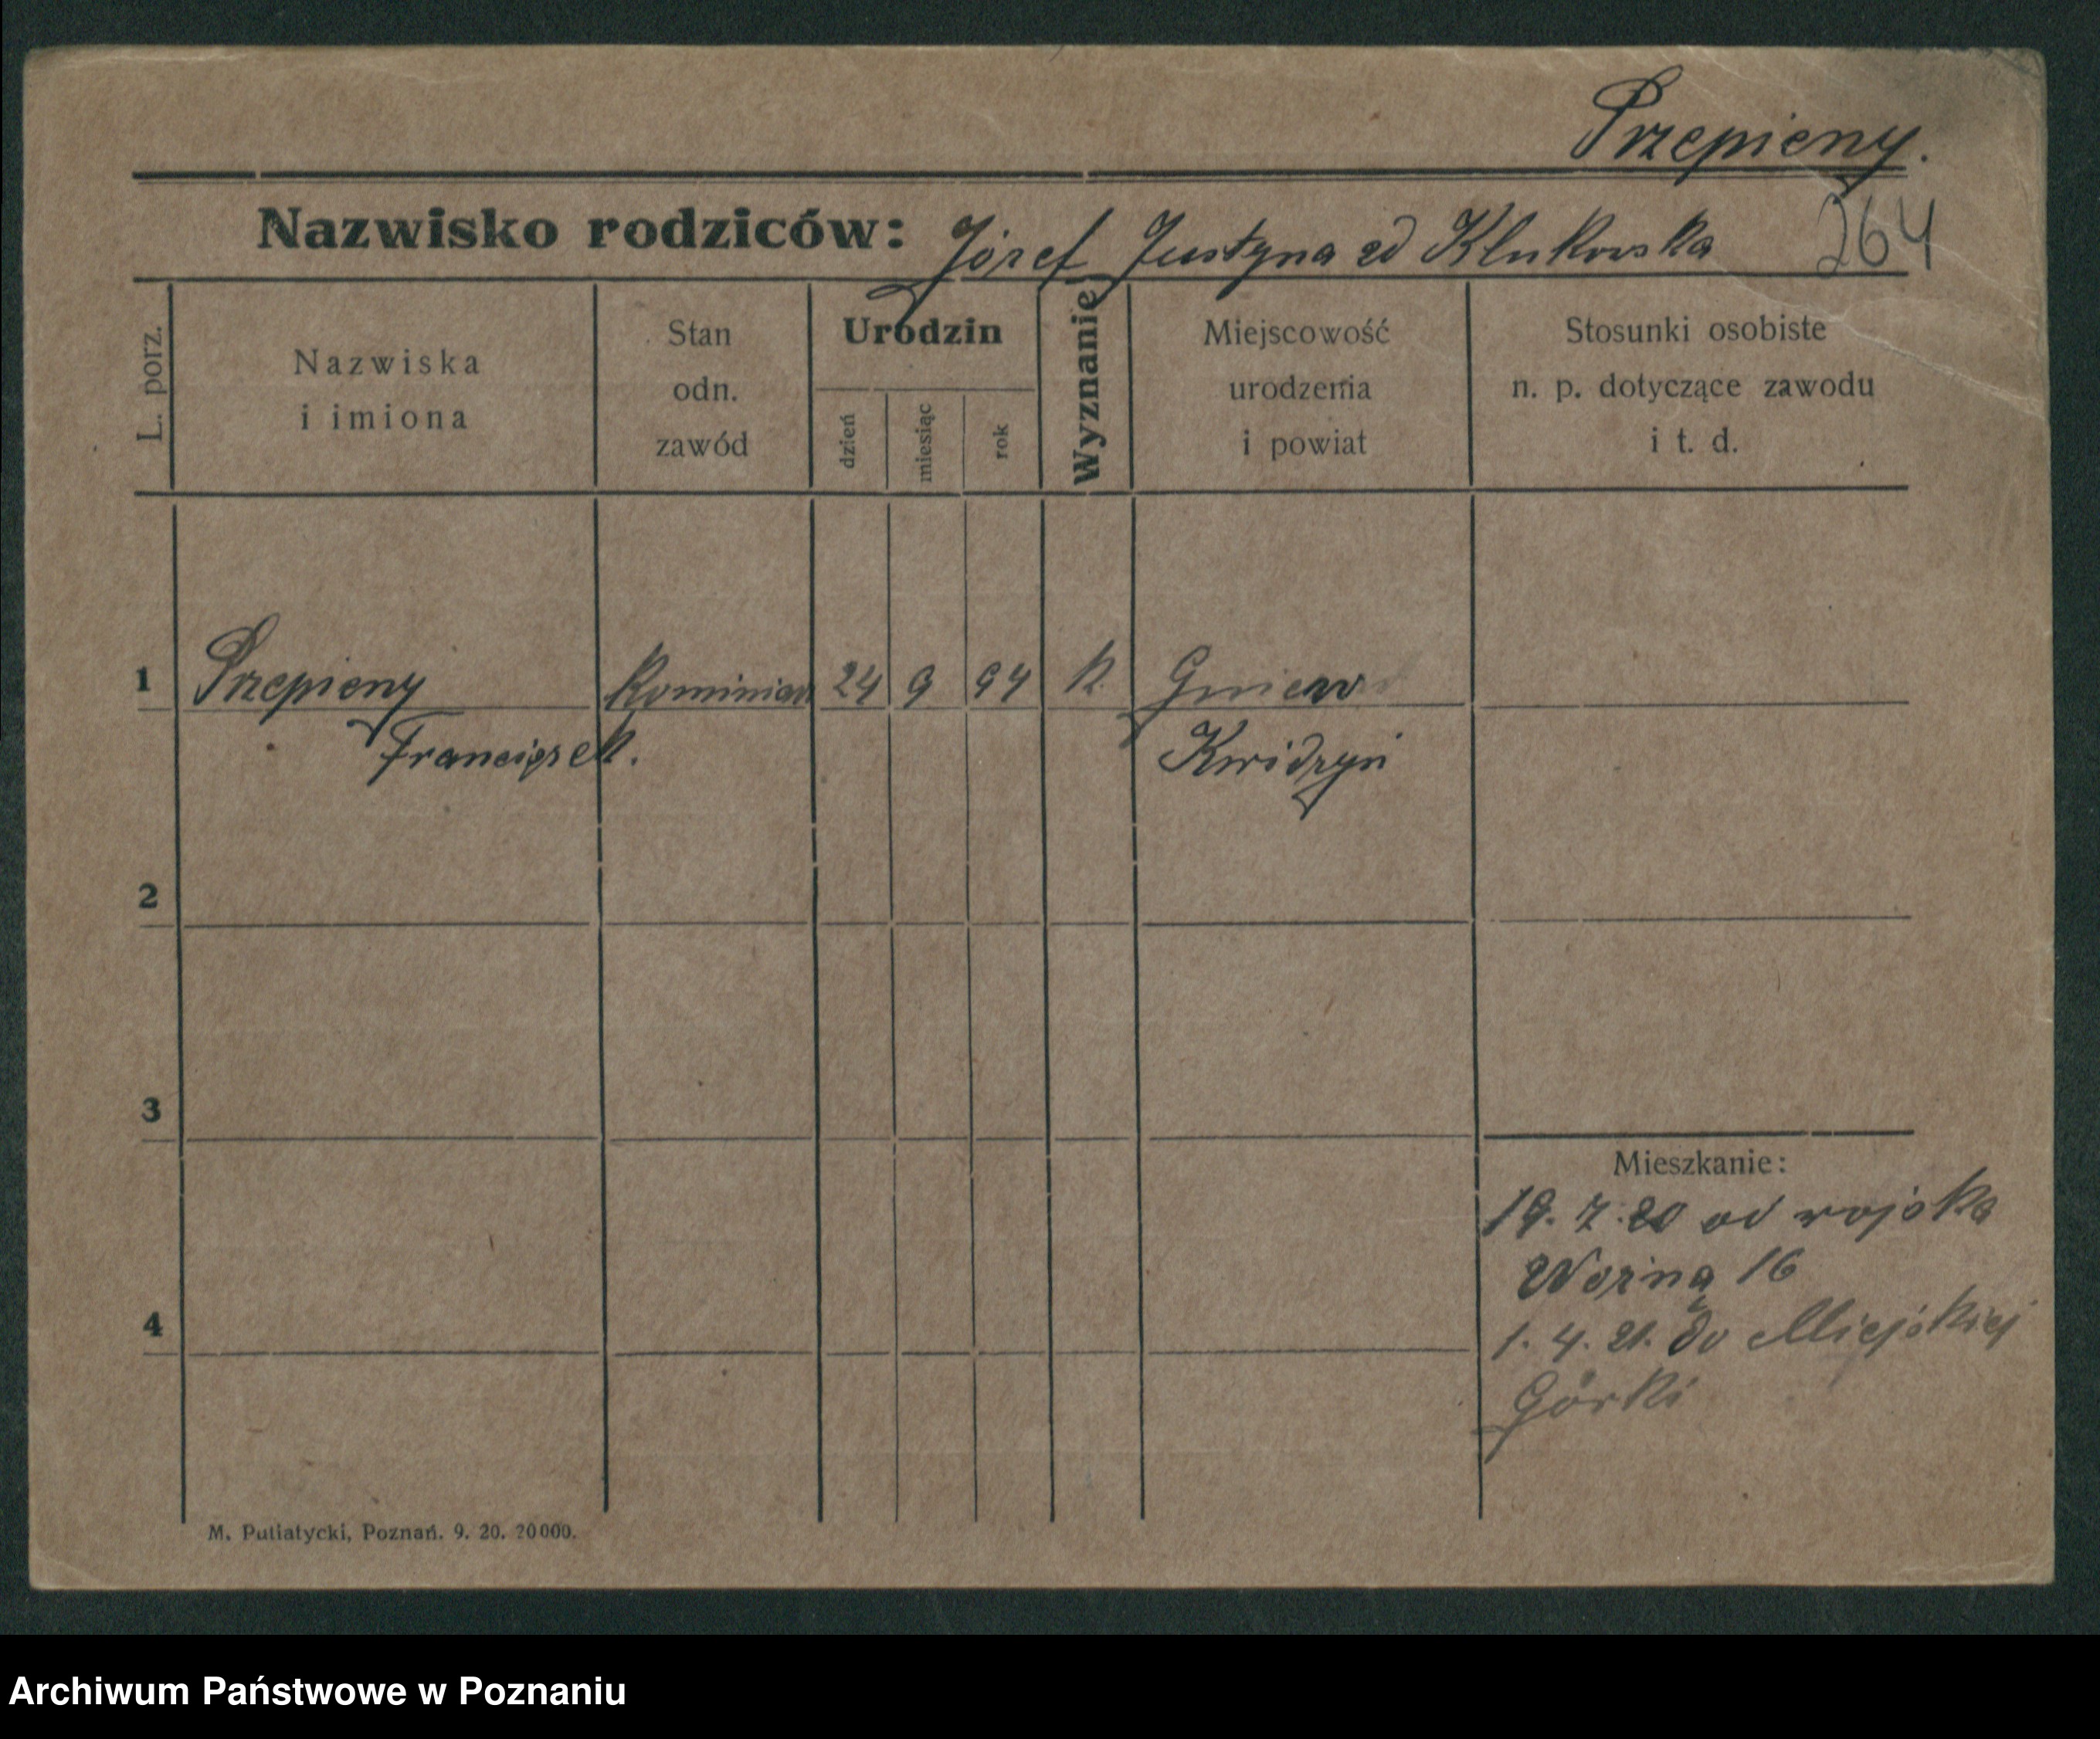 Przepieny.
Nazwisko rodziców: Józef Justyna zd Klukowska
264
L. porz.
Nazwiska
i imiona
Stan
odn.
zawód
Urodzin
dzień
miesiąc
rok
Wyznanie
Miejscowość
urodzenia
i powiat
Stosunki osobiste
n. p. dotyczące zawodu
i t. d.
1 Przepieny Kominiarz 24 9 94 k. Gniew
Franciszek. Kwidzyń
2
3
Mieszkanie:
19. 7. 20 od wojska
Woźna 16
4
1. 4. 21. do Miejskiej
Górki
M. Putiatycki, Poznań. 9. 20. 20000.
Archiwum Państwowe w Poznaniu